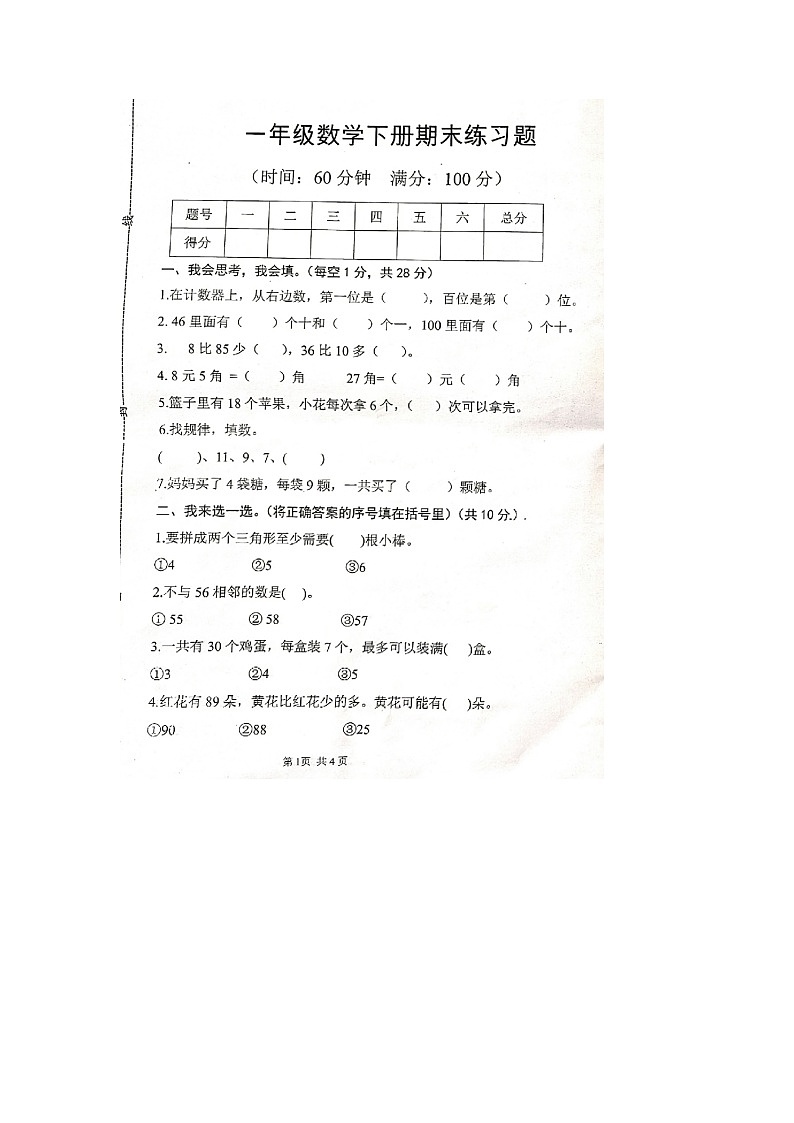 一年级数学下册期末练习题
（时间：60 分钟　满分：100 分）
题号 一 二 三 四 五 六 总分
得分
一、我会思考，我会填。（每空 1 分，共 28 分）
1.在计数器上，从右边数，第一位是（　　），百位是第（　　）位。
2. 46 里面有（　　）个十和（　　）个一，100 里面有（　　）个十。
3.　8 比 85 少（　　），36 比 10 多（　　）。
4. 8 元 5 角 =（　　）角　　27 角=（　　）元（　　）角
5.篮子里有 18 个苹果，小花每次拿 6 个，（　　）次可以拿完。
6.找规律，填数。
(　　)、11、9、7、(　　)
7.妈妈买了 4 袋糖，每袋 9 颗，一共买了（　　）颗糖。
二、我来选一选。（将正确答案的序号填在括号里）（共 10 分）.
1.要拼成两个三角形至少需要(　　)根小棒。
①4　　②5　　③6
2.不与 56 相邻的数是(　　)。
① 55　　② 58　　③57
3.一共有 30 个鸡蛋，每盒装 7 个，最多可以装满(　　)盒。
①3　　②4　　③5
4.红花有 89 朵，黄花比红花少的多。黄花可能有(　　)朵。
①90　　②88　　③25
第 1页 共 4 页
线